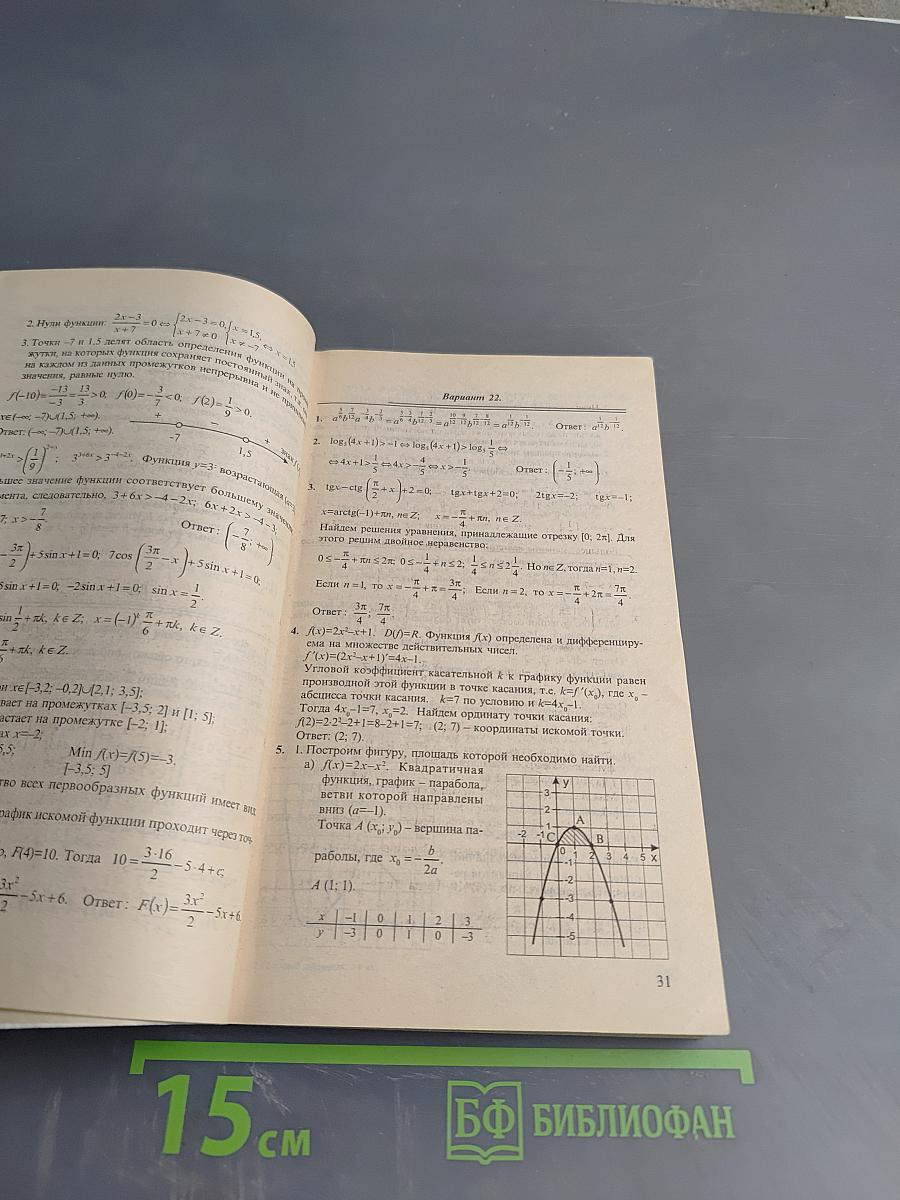 2. Нули функции: (2x−3)/(x+7)=0 ⇔ {2x−3=0, x+7≠0 {x=1,5, x≠−7 ⇔ x=1,5
3. Точки −7 и 1,5 делят область определения функции на
жутки, на которых функция сохраняет постоянный знак,
на каждом из данных промежутков непрерывна и не
значения, равные нулю.
f(−10)=−13/−3=13/3>0; f(0)=−3/7<0; f(2)=1/9>0.
x∈(−∞; −7)∪(1,5; +∞).
Ответ: (−∞; −7)∪(1,5; +∞).
+ − +
-7 1,5
>(1/9)
Функция y=3 возрастающая
ьшее значение функции соответствует большему
мента, следовательно, 3+6x>−4−2x; 6x+2x>−4−3;
7; x>−7/8. Ответ: (−7/8; +∞)
−3π/2)+5sin x+1=0; 7cos(3π/2−x)+5sin x+1=0;
5sin x+1=0; −2sin x+1=0; sin x=1/2.
sin 1/2+πk, k∈Z; x=(−1)^k π/6+πk, k∈Z.
π/6+πk, k∈Z.
и x∈[−3,2; −0,2]∪[2,1; 3,5];
вает на промежутках [−3,5; 2] и [1; 5];
астает на промежутке [−2; 1];
ах x=−2;
5,5; Min f(x)=f(5)=−3.
[−3,5; 5]
тво всех первообразных функций имеет вид
рафик искомой функции проходит через точ
F(4)=10. Тогда 10=3·16/2−5·4+c;
3x²/2−5x+6. Ответ: F(x)=3x²/2−5x+6.
Вариант 22.
1. Ответ: a^(1/12)b^(−1/12).
2. log₅(4x+1)>−1⇔log₅(4x+1)>log₅ 1/5 ⇔
⇔4x+1>1/5⇔4x>−4/5⇔x>−1/5. Ответ: (−1/5; +∞)
3. tgx−ctg(π/2+x)+2=0; tgx+tgx+2=0; 2tgx=−2; tgx=−1;
x=arctg(−1)+πn, n∈Z; x=−π/4+πn, n∈Z.
Найдем решения уравнения, принадлежащие отрезку [0; 2π]. Для
этого решим двойное неравенство:
0≤−π/4+πn≤2π; 0≤−1/4+n≤2; 1/4≤n≤2 1/4. Но n∈Z, тогда n=1, n=2.
Если n=1, то x=−π/4+π=3π/4; Если n=2, то x=−π/4+2π=7π/4.
Ответ: 3π/4; 7π/4.
4. f(x)=2x²−x+1. D(f)=R. Функция f(x) определена и дифференциру-
ема на множестве действительных чисел.
f′(x)=(2x²−x+1)′=4x−1.
Угловой коэффициент касательной k к графику функции равен
производной этой функции в точке касания, т.е. k=f′(x₀), где x₀ –
абсцисса точки касания. k=7 по условию и k=4x₀−1.
Тогда 4x₀−1=7, x₀=2. Найдем ординату точки касания:
f(2)=2·2²−2+1=8−2+1=7; (2; 7) – координаты искомой точки.
Ответ: (2; 7).
5. 1. Построим фигуру, площадь которой необходимо найти.
а) f(x)=2x−x². Квадратичная
функция, график – парабола,
ветви которой направлены
вниз (a=−1).
Точка A (x₀; y₀) – вершина па-
раболы, где x₀=−b/2a.
A (1; 1).
x −1 0 1 2 3
y −3 0 1 0 −3
y
3
2
1 A
-2 -1 C B
0 1 2 3 4 5 x
-1
-2
-3
-4
-5
31
15 см
БФ БИБЛИОФАН